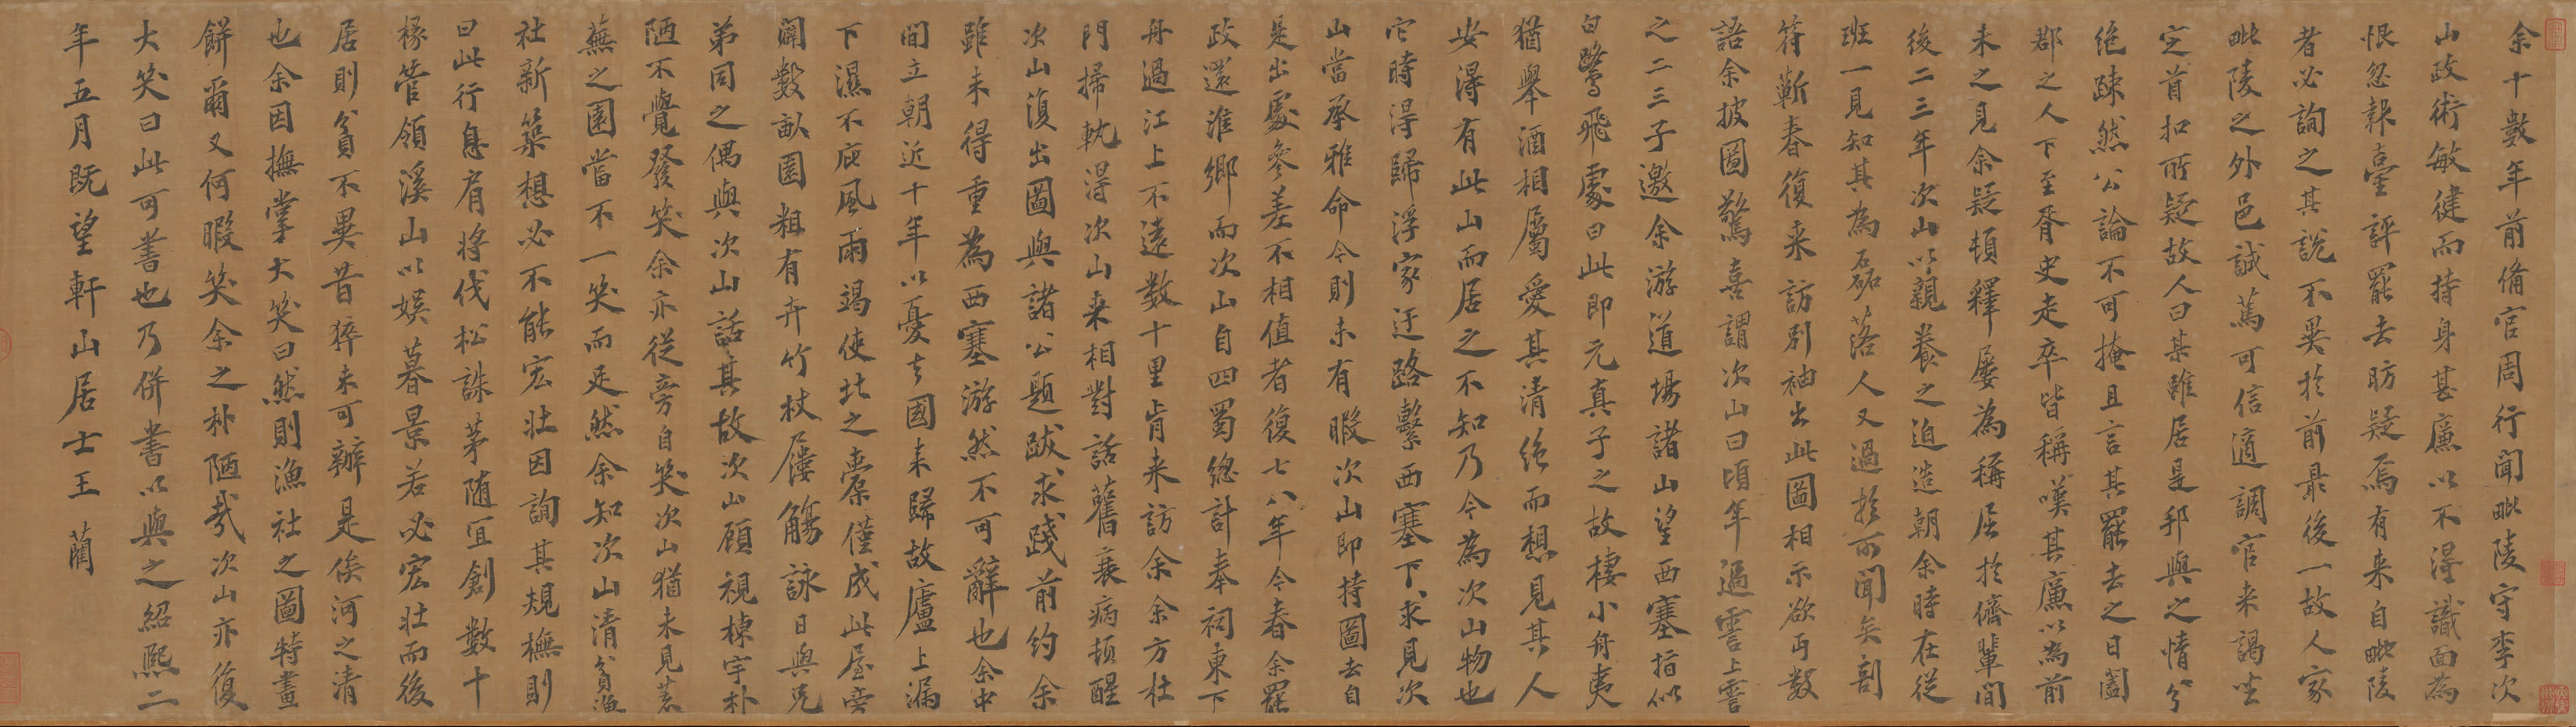 余十數年前備官周行聞毗陵守李次
山政術敏健而持身甚廉以不得識面為
恨忽報臺評罷去昉疑焉有来自毗陵
者必詢之其說不異於前最後一故人家
毗陵之外邑誠篤可信適調官来謁坐
定首扣所疑故人曰某雖居是邦與之情分
絶踈然公論不可掩且言其罷去之日闔
郡之人下至胥史走卒皆稱嘆其廉以為前
未之見余疑頓釋屢為稱屈於儕輩間
後二三年次山以親養之迫造朝余時在從
班一見知其為磊落人又過於所聞矣剖
符蘄春復来訪别袖出此圖相示欲丐數
語余披圖驚喜謂次山曰頃年過霅上霅
之二三子邀余游道場諸山望西塞指似
白鷺飛處曰此即元真子之故棲小舟夷
猶舉酒相屬愛其清絶而想見其人
安得有此山而居之不知乃今為次山物也
它時得歸浮家迂路繫西塞下求見次
山當承雅命今則未有暇次山即持圖去自
是出處參差不相值者復七八年今春余罷
政還淮鄉而次山自四蜀總計奉祠東下
舟過江上不遠數十里肯来訪余余方杜
門掃軌得次山来相對話舊衰病頓醒
次山復出圖與諸公題跋求踐前約余
雖未得重為西塞游然不可辭也余中
間立朝近十年以憂去國来歸故廬上漏
下濕不庇風雨竭使北之橐僅成此屋旁
闢數畝園粗有卉竹杖屨觴詠日與兄
弟同之偶與次山話其故次山顧視棟宇朴
陋不覺發笑余亦從旁自笑次山猶未見荒
蕪之園當不一笑而足然余知次山清貧漁
社新築想必不能宏壯因詢其規橅則
曰此行息肩将伐松誅茅随宜創數十
椽管領溪山以娱暮景若必宏壯而後
居則貧不異昔猝未可辦是俟河之清
也余因撫掌大笑曰然則漁社之圖特畫
餅爾又何暇笑余之朴陋哉次山亦復
大笑曰此可書也乃併書以與之紹熙二
年五月既望軒山居士王藺